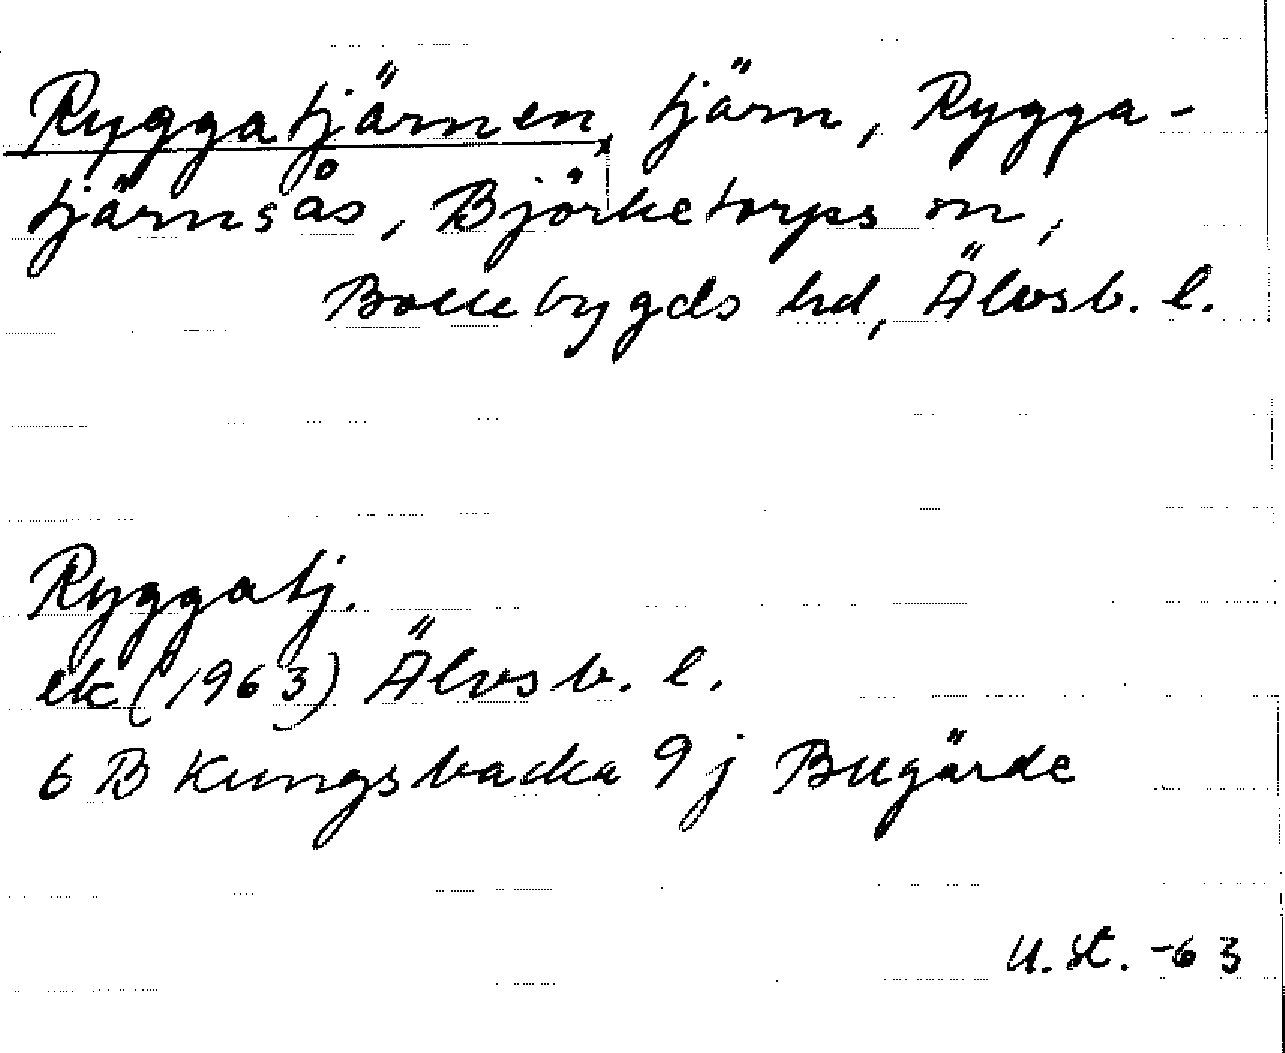 Ryggatjärnen, tjärn, Rygga-
tjärnsås, Björketorps sn,
Bollebygds hd, Älvsb. l.
Ryggatj.
ek (1963) Älvsb. l.
6 B Kungsbacka 9 j Bugärde
U. St. -63